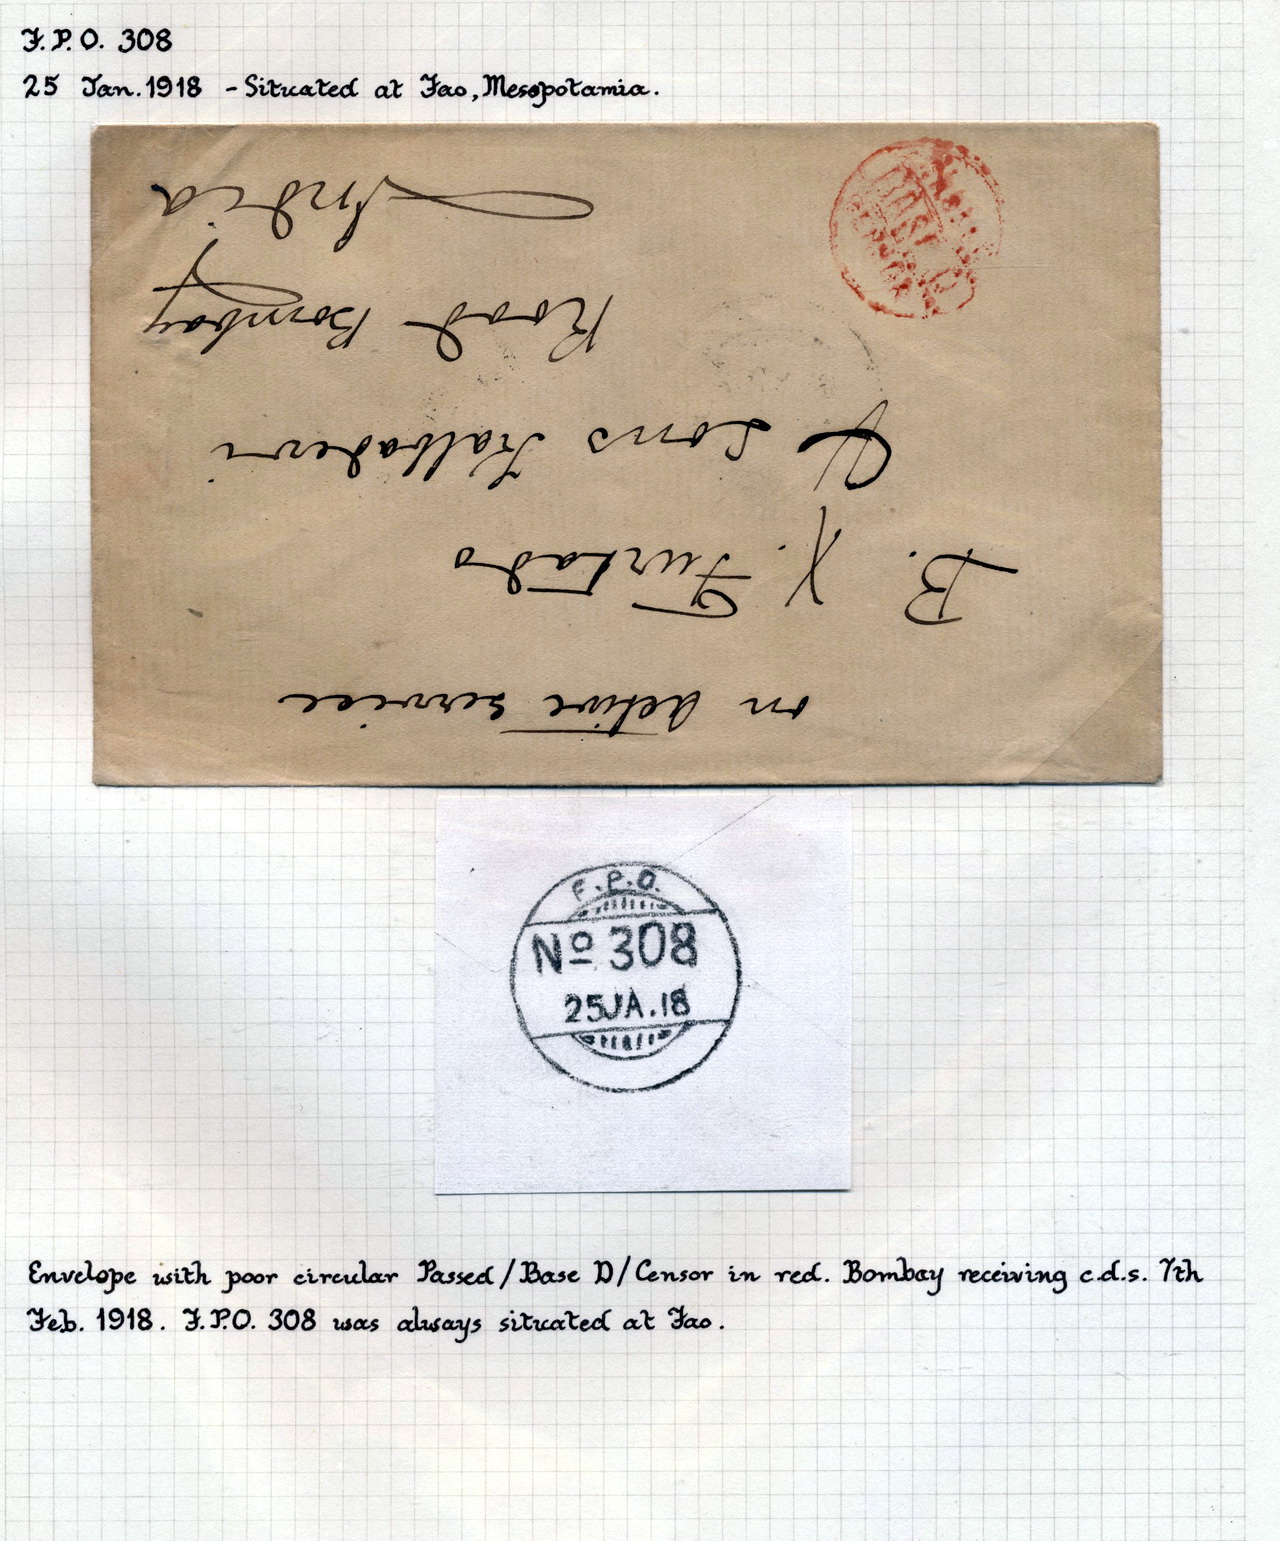 F.P.O. 308
25 Jan. 1918 - Situated at Fao, Mesopotamia.
on active service
B. X. Furtado
& Sons Kalbaderi
Road Bombay
India
F.P.O.
No 308
25JA.18
Envelope with poor circular Passed/Base D/Censor in red. Bombay receiving c.d.s. 7th
Feb. 1918. F.P.O. 308 was always situated at Fao.